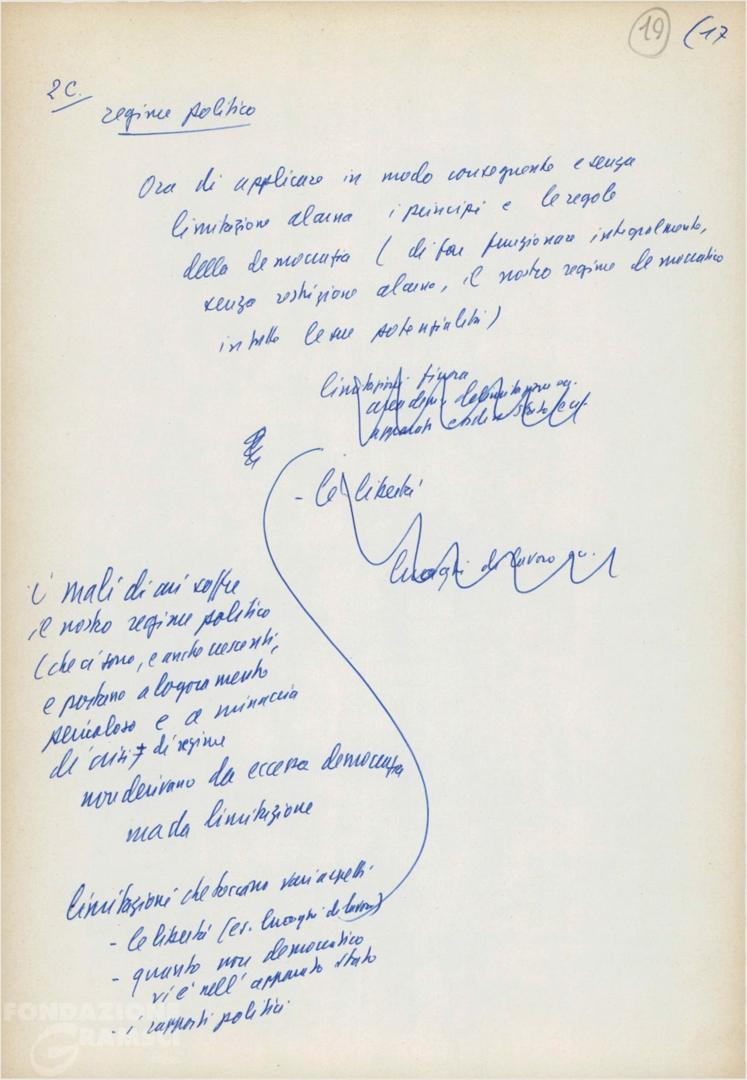 19 (17
2C.
regime politico
Ora di applicare in modo conseguente e senza
limitazione alcuna i principi e le regole
della democrazia (di far funzionare integralmente,
senza restrizione alcuna, il nostro regime democratico
in tutte le sue potenzialità)
limitazioni finora
- le libertà
luoghi di lavoro ecc.
i mali di cui soffre
il nostro regime politico
(che ci sono, e anche crescenti,
e portano a logoramento
pericoloso e a minaccia
di crisi di regime
non derivano da eccessa democrazia
ma da limitazione
limitazioni che toccano vari aspetti
- le libertà (es. luoghi di lavoro)
- quanto non democratico
vi è nell'apparato stato
- i rapporti politici
FONDAZIONE
GRAMSCI